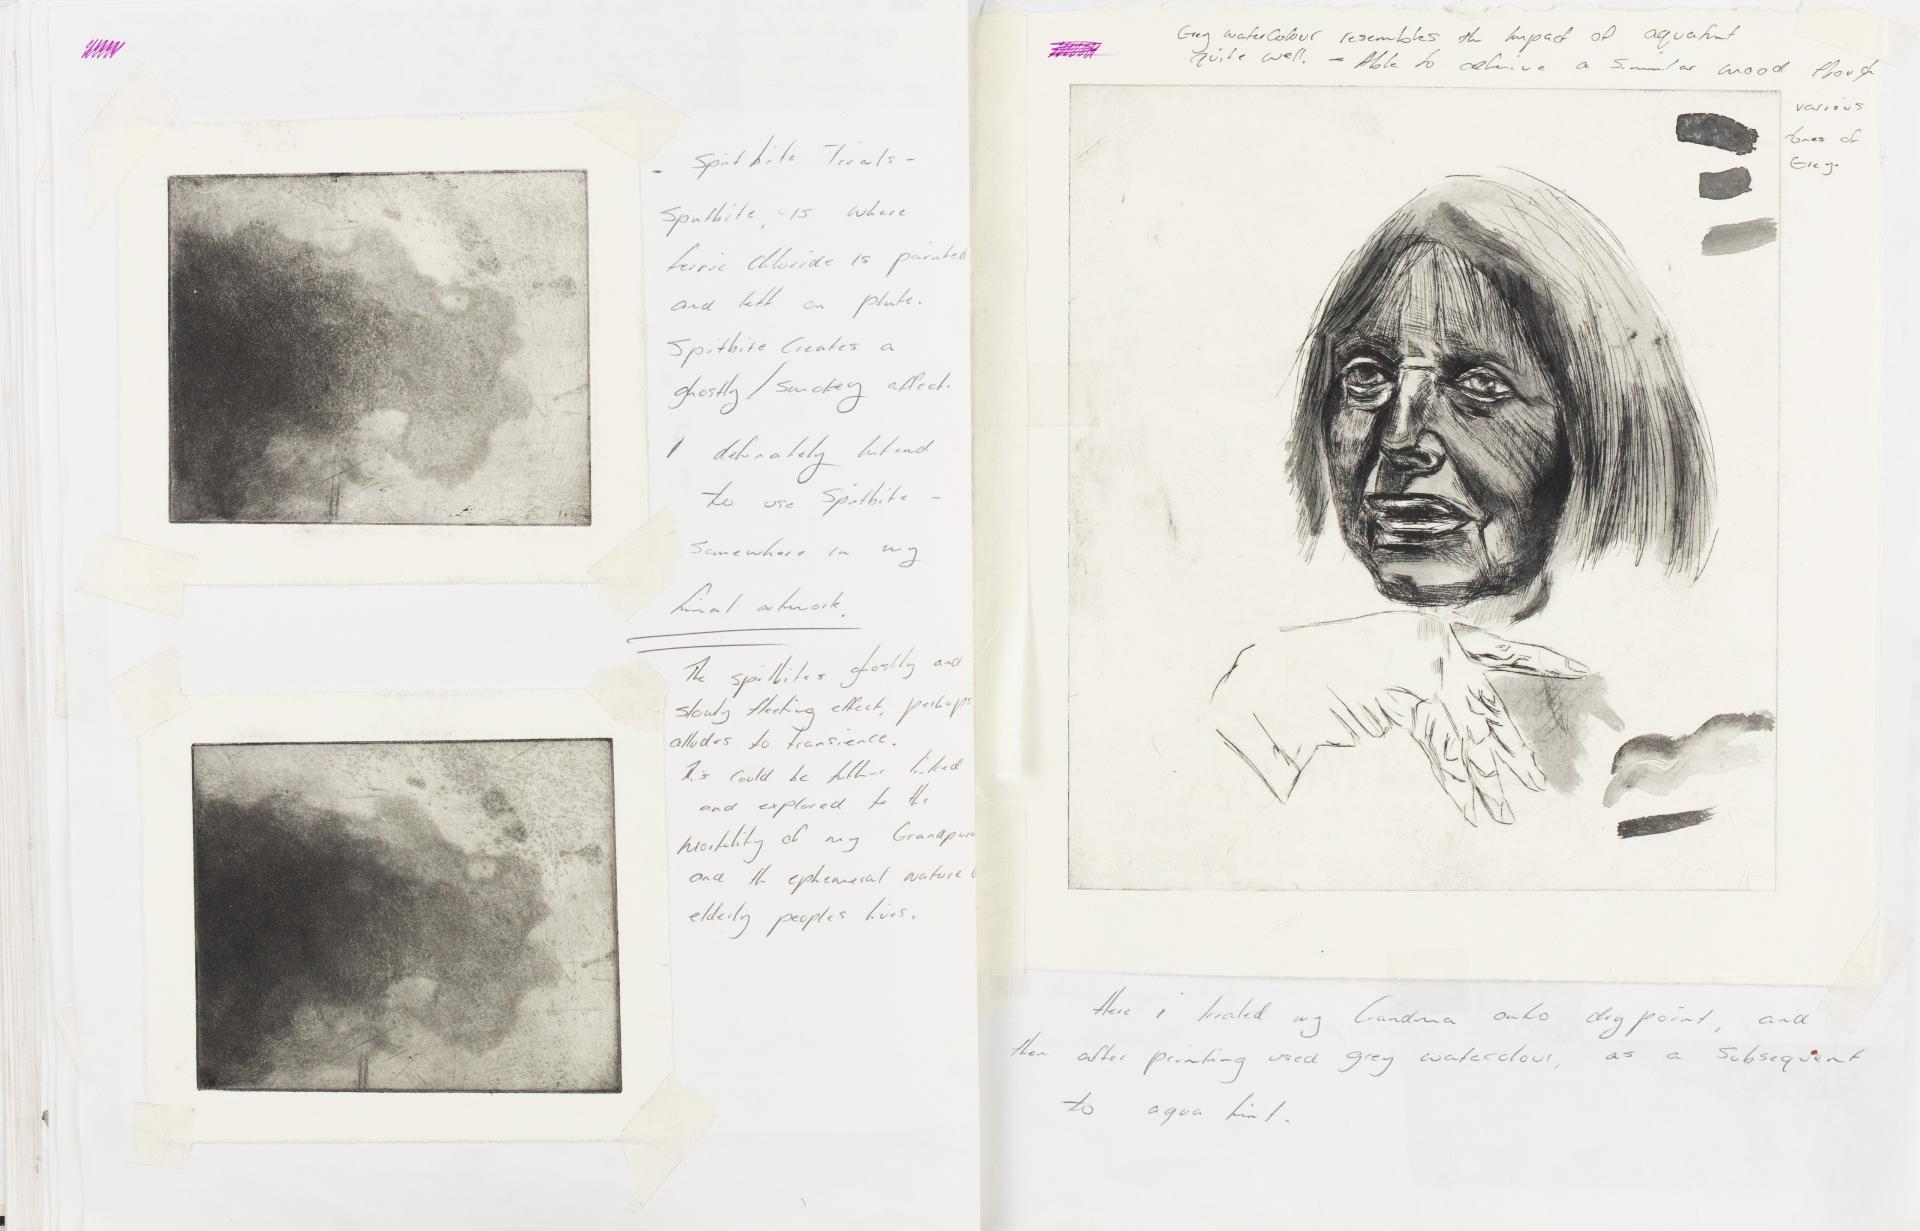 Spitbite Trials -
Spitbite, - is where
ferric chloride is painted
and left on plate.
Spitbite Creates a
ghostly / smokey affect.
I definately intend
to use Spitbite -
somewhere in my
final artwork.
The spitbites ghostly and
slowly fleeting effect, perhaps
alludes to transience.
This could be futher linked
and explored to the
mortility of my
and the ephemeral nature
elderly peoples lives.
Grey watercolour resembles the impact of aquatint
quite well. - Able to acheive a simmilar mood though
various
tones of
Grey.
Here i treated my Grandma onto drypoint, and
then after printing used grey watercolour, as a Subsequent
to aqua tint.